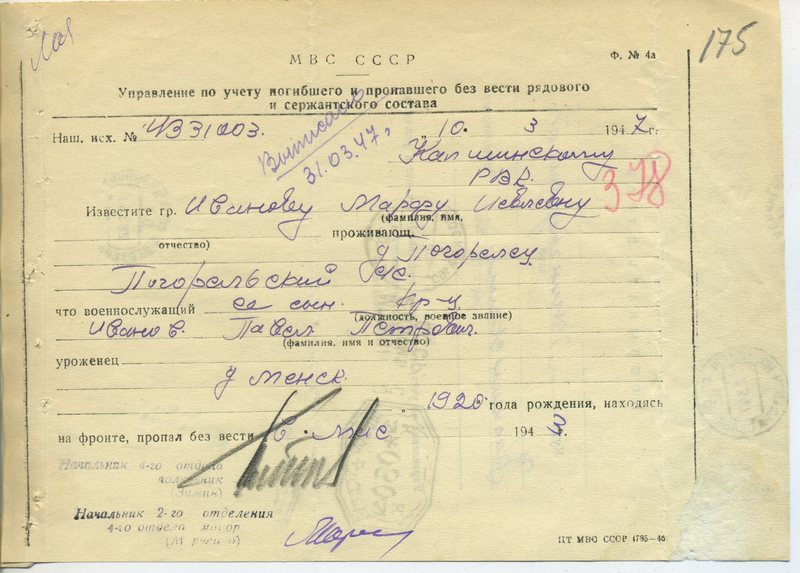 175
МВС СССР
Ф. № 4а
Управление по учету погибшего и пропавшего без вести рядового
и сержантского состава
Выписано
31.03.47г
Наш. исх. № 4331003. „10. 3 1947г.
Капшинскому
РВК.
378
Известите гр. Иванову Марфу
(фамилия, имя,
проживающ.
отчество)
д Погорелец
Погорельский с/с.
что военнослужащий ее сын. Кр-ц
(должность, военное звание)
Иванов. Павел Петрович.
(фамилия, имя и отчество)
уроженец
д Менск.
1920 года рождения, находясь
на фронте, пропал без вести в 1943г.
Начальник 4-го отдела
полковник
Начальник 2-го отделения
4-го отдела майор
ПТ МВС СССР